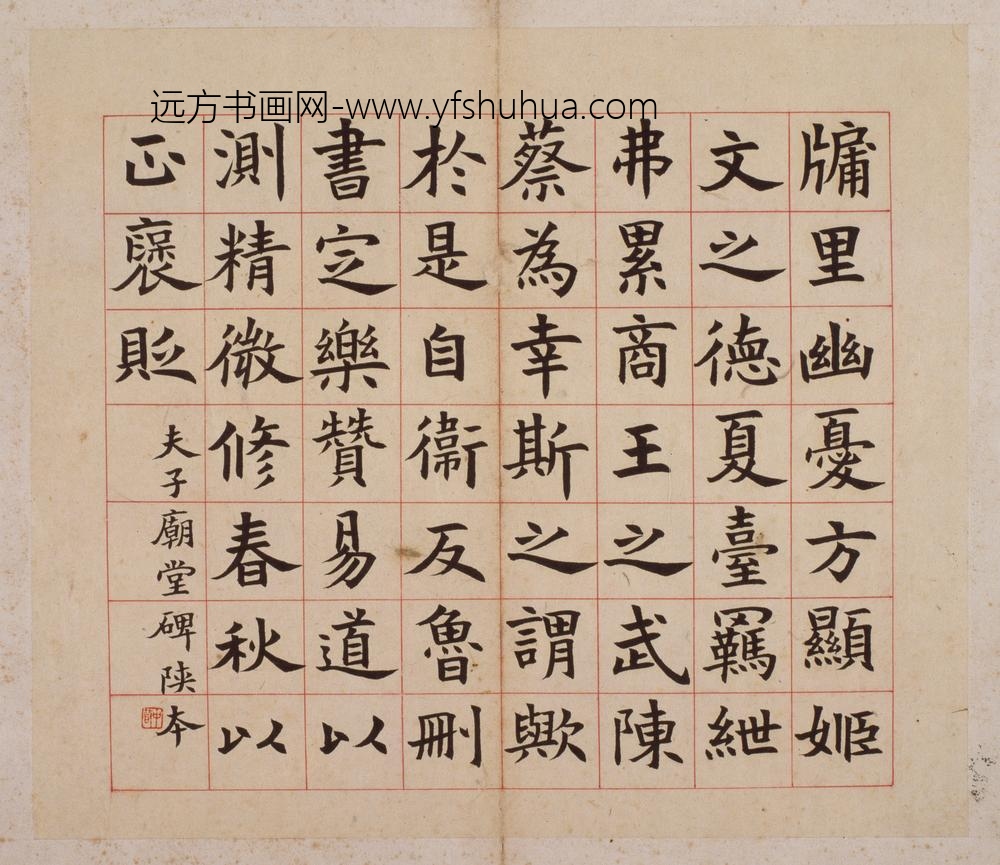 远方书画网-www.yfshuhua.com
牗里幽憂方顯姬
文之德夏臺羈紲
弗累商王之武陳
蔡為幸斯之謂歟
於是自衞反魯刪
書定樂贊易道以
測精微修春秋以
正褒貶
夫子廟堂碑陕本